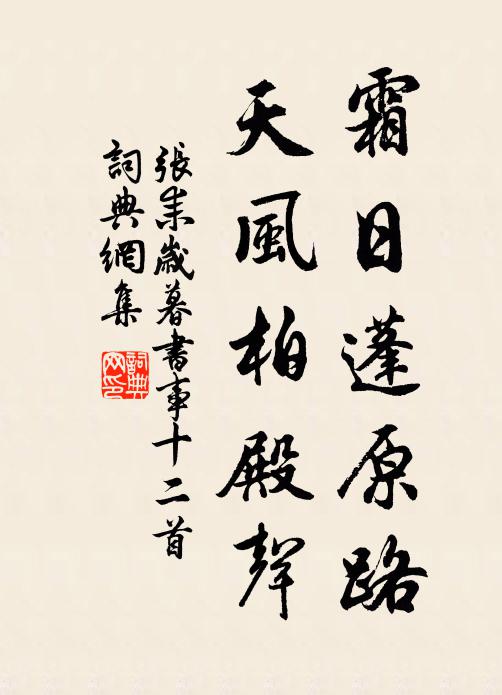 霜日蓬原路
天風柏殿聲
張耒歲暮書事十二首
詞典網集
詞典网印